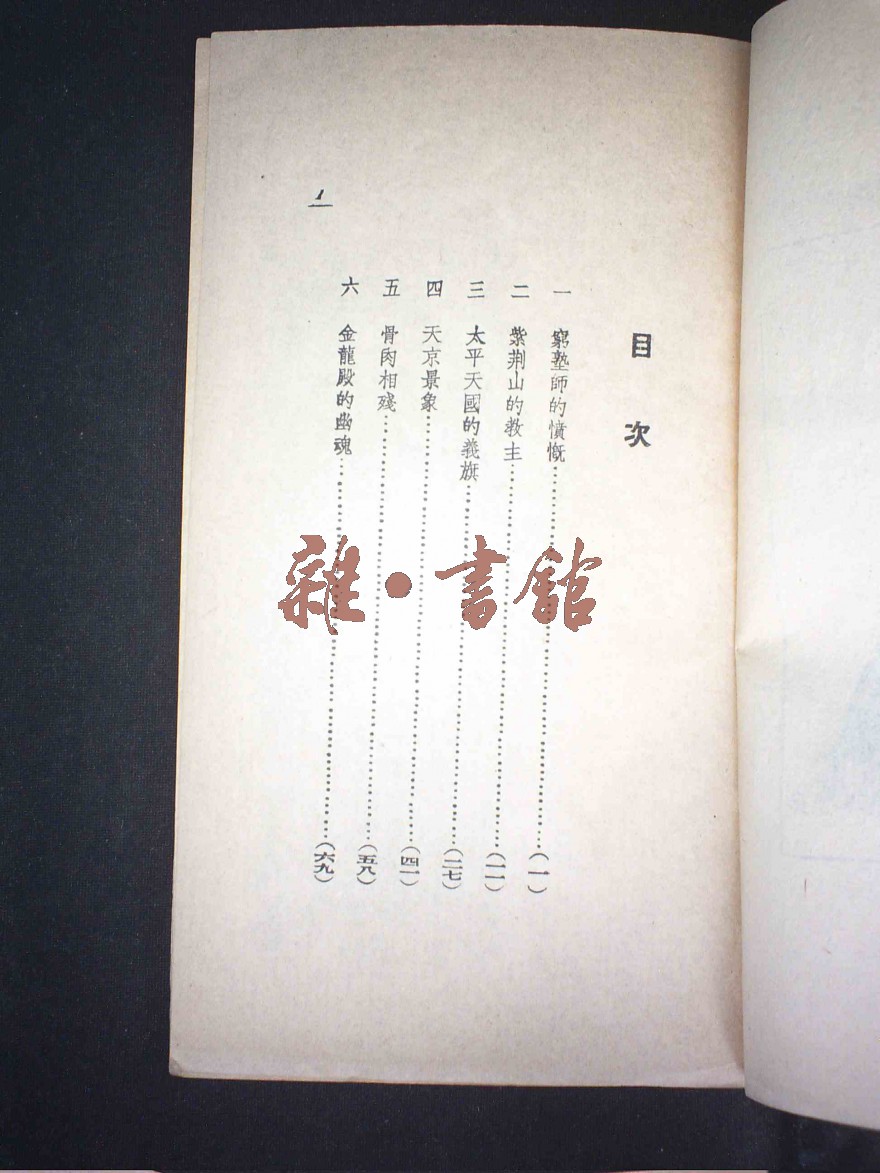 目次
一 窮塾師的憤慨……(一)
二 紫荆山的教主……(一一)
三 太平天國的義旗……(二七)
四 天京景象……(四一)
五 骨肉相殘……(五八)
六 金龍殿的幽魂……(六九)
1
雜·書館